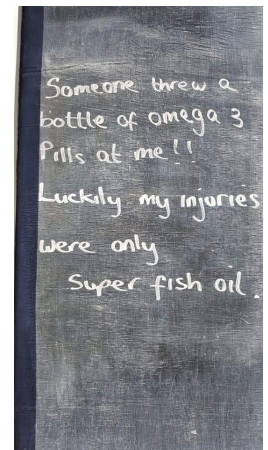 Someone threw a
bottle of omega 3
Pills at me!!
Luckily my injuries
were only
Super fish oil.